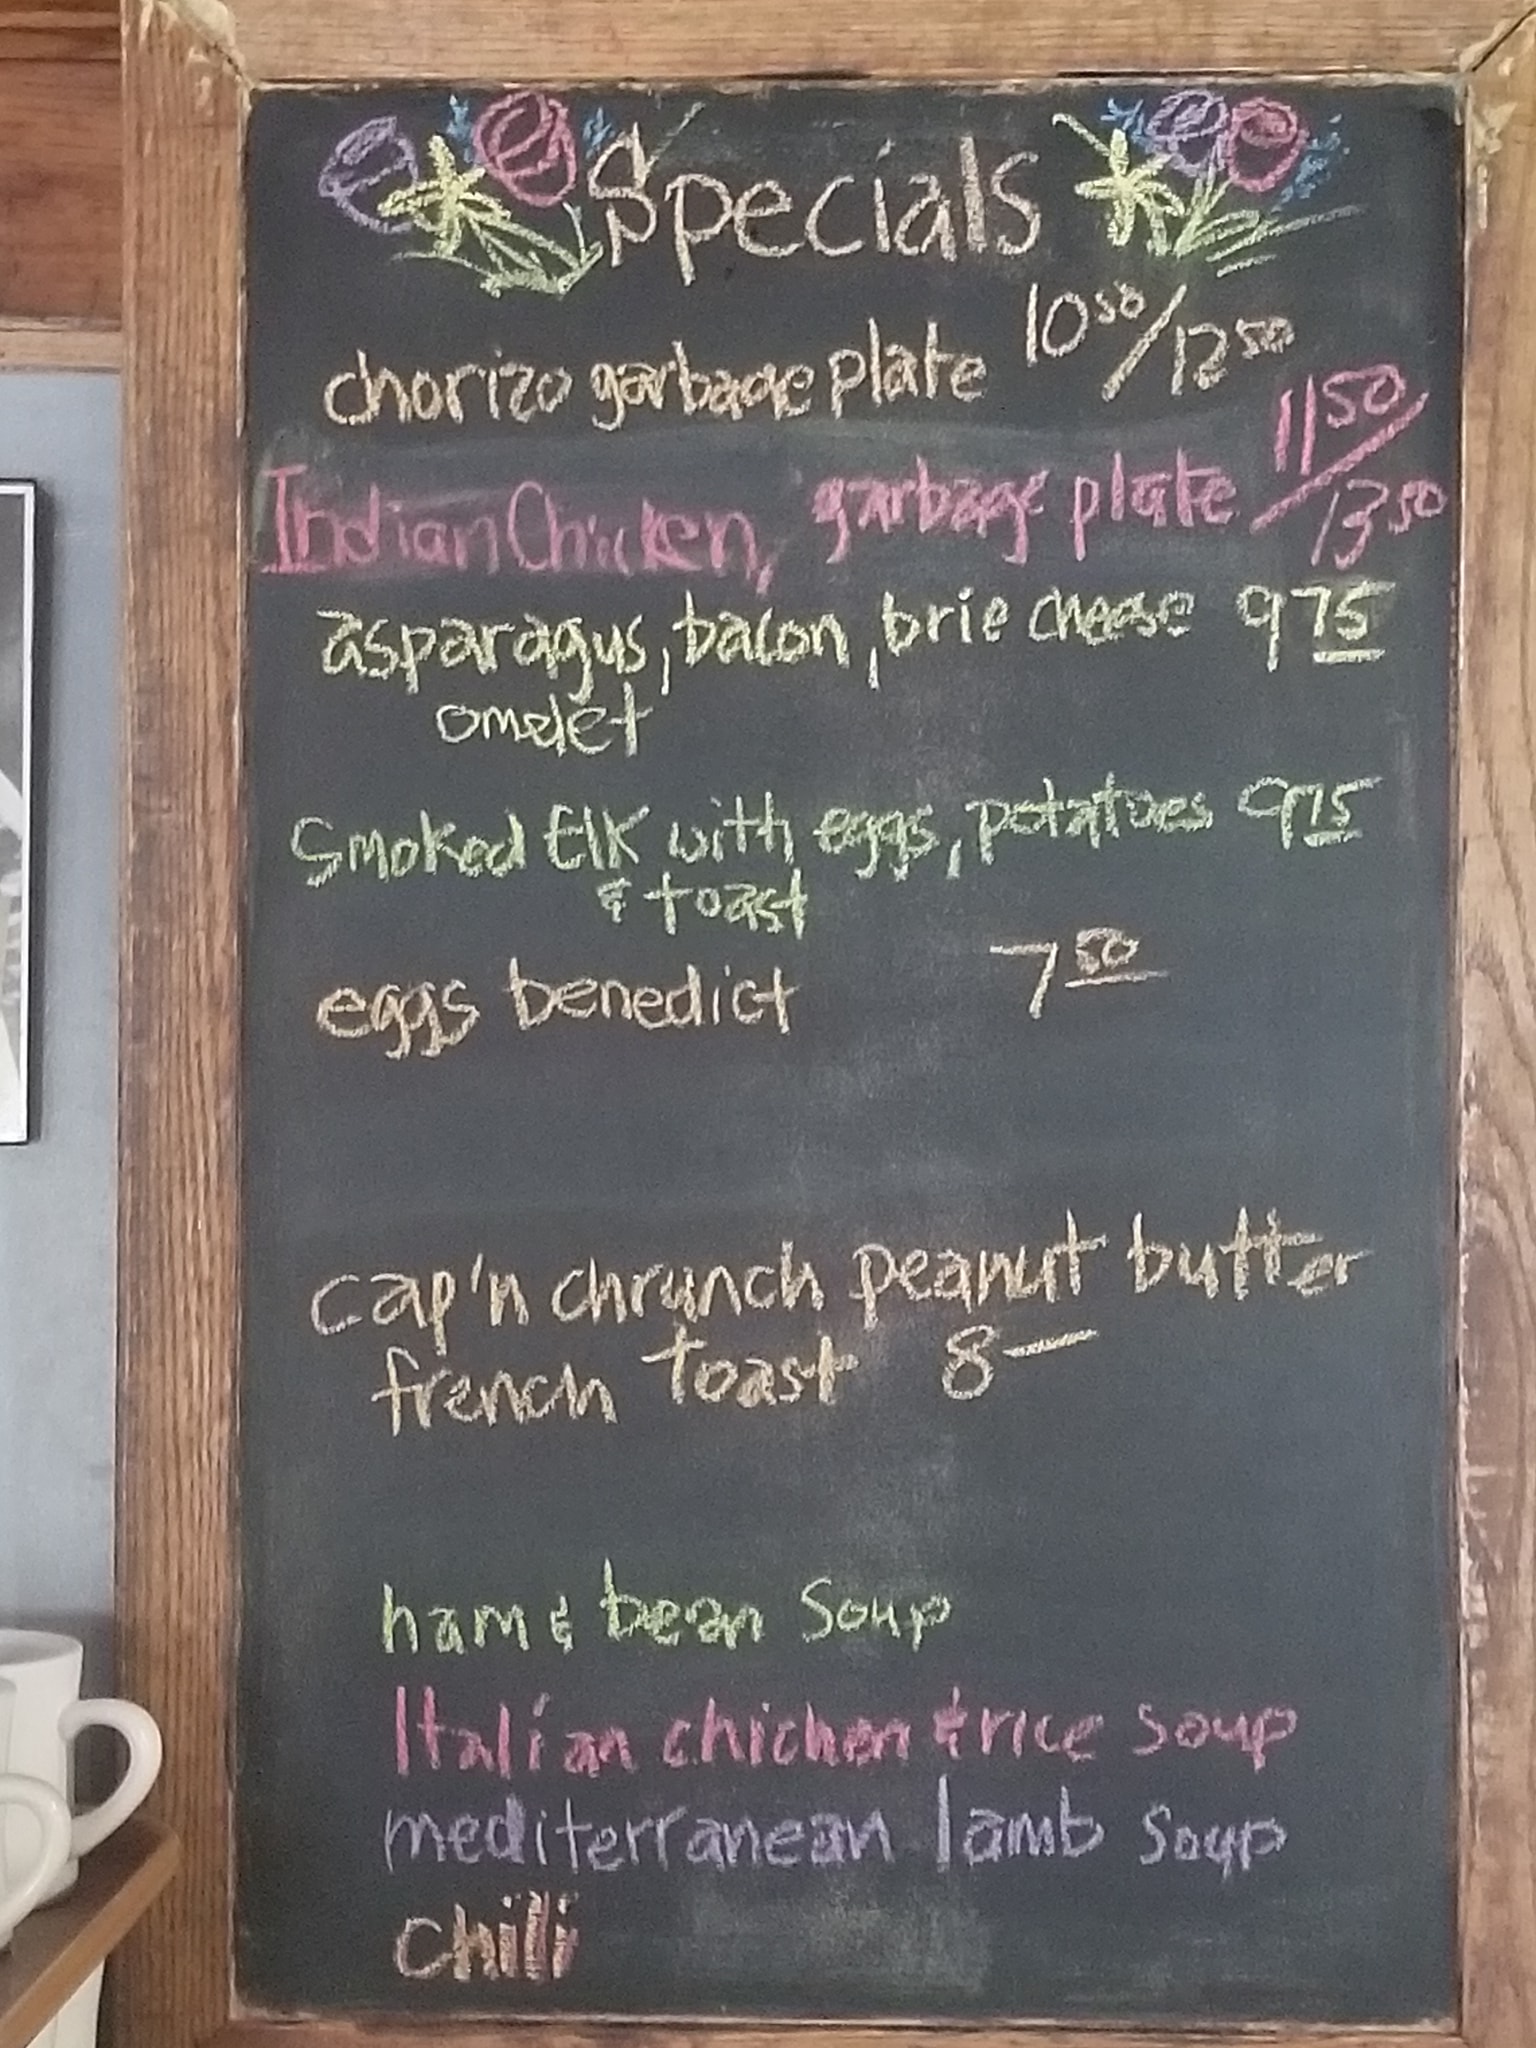 Specials
chorizo garbage plate 10⁵⁰/12⁵⁰
Indian Chicken, garbage plate 11⁵⁰/13⁵⁰
asparagus, bacon, brie cheese 9⁷⁵
omelet
Smoked Elk with eggs, potatoes 9⁷⁵
& toast
eggs benedict 7⁵⁰
cap'n chrunch peanut butter
french toast 8—
ham & bean soup
Italian chicken & rice soup
mediterranean lamb soup
chili